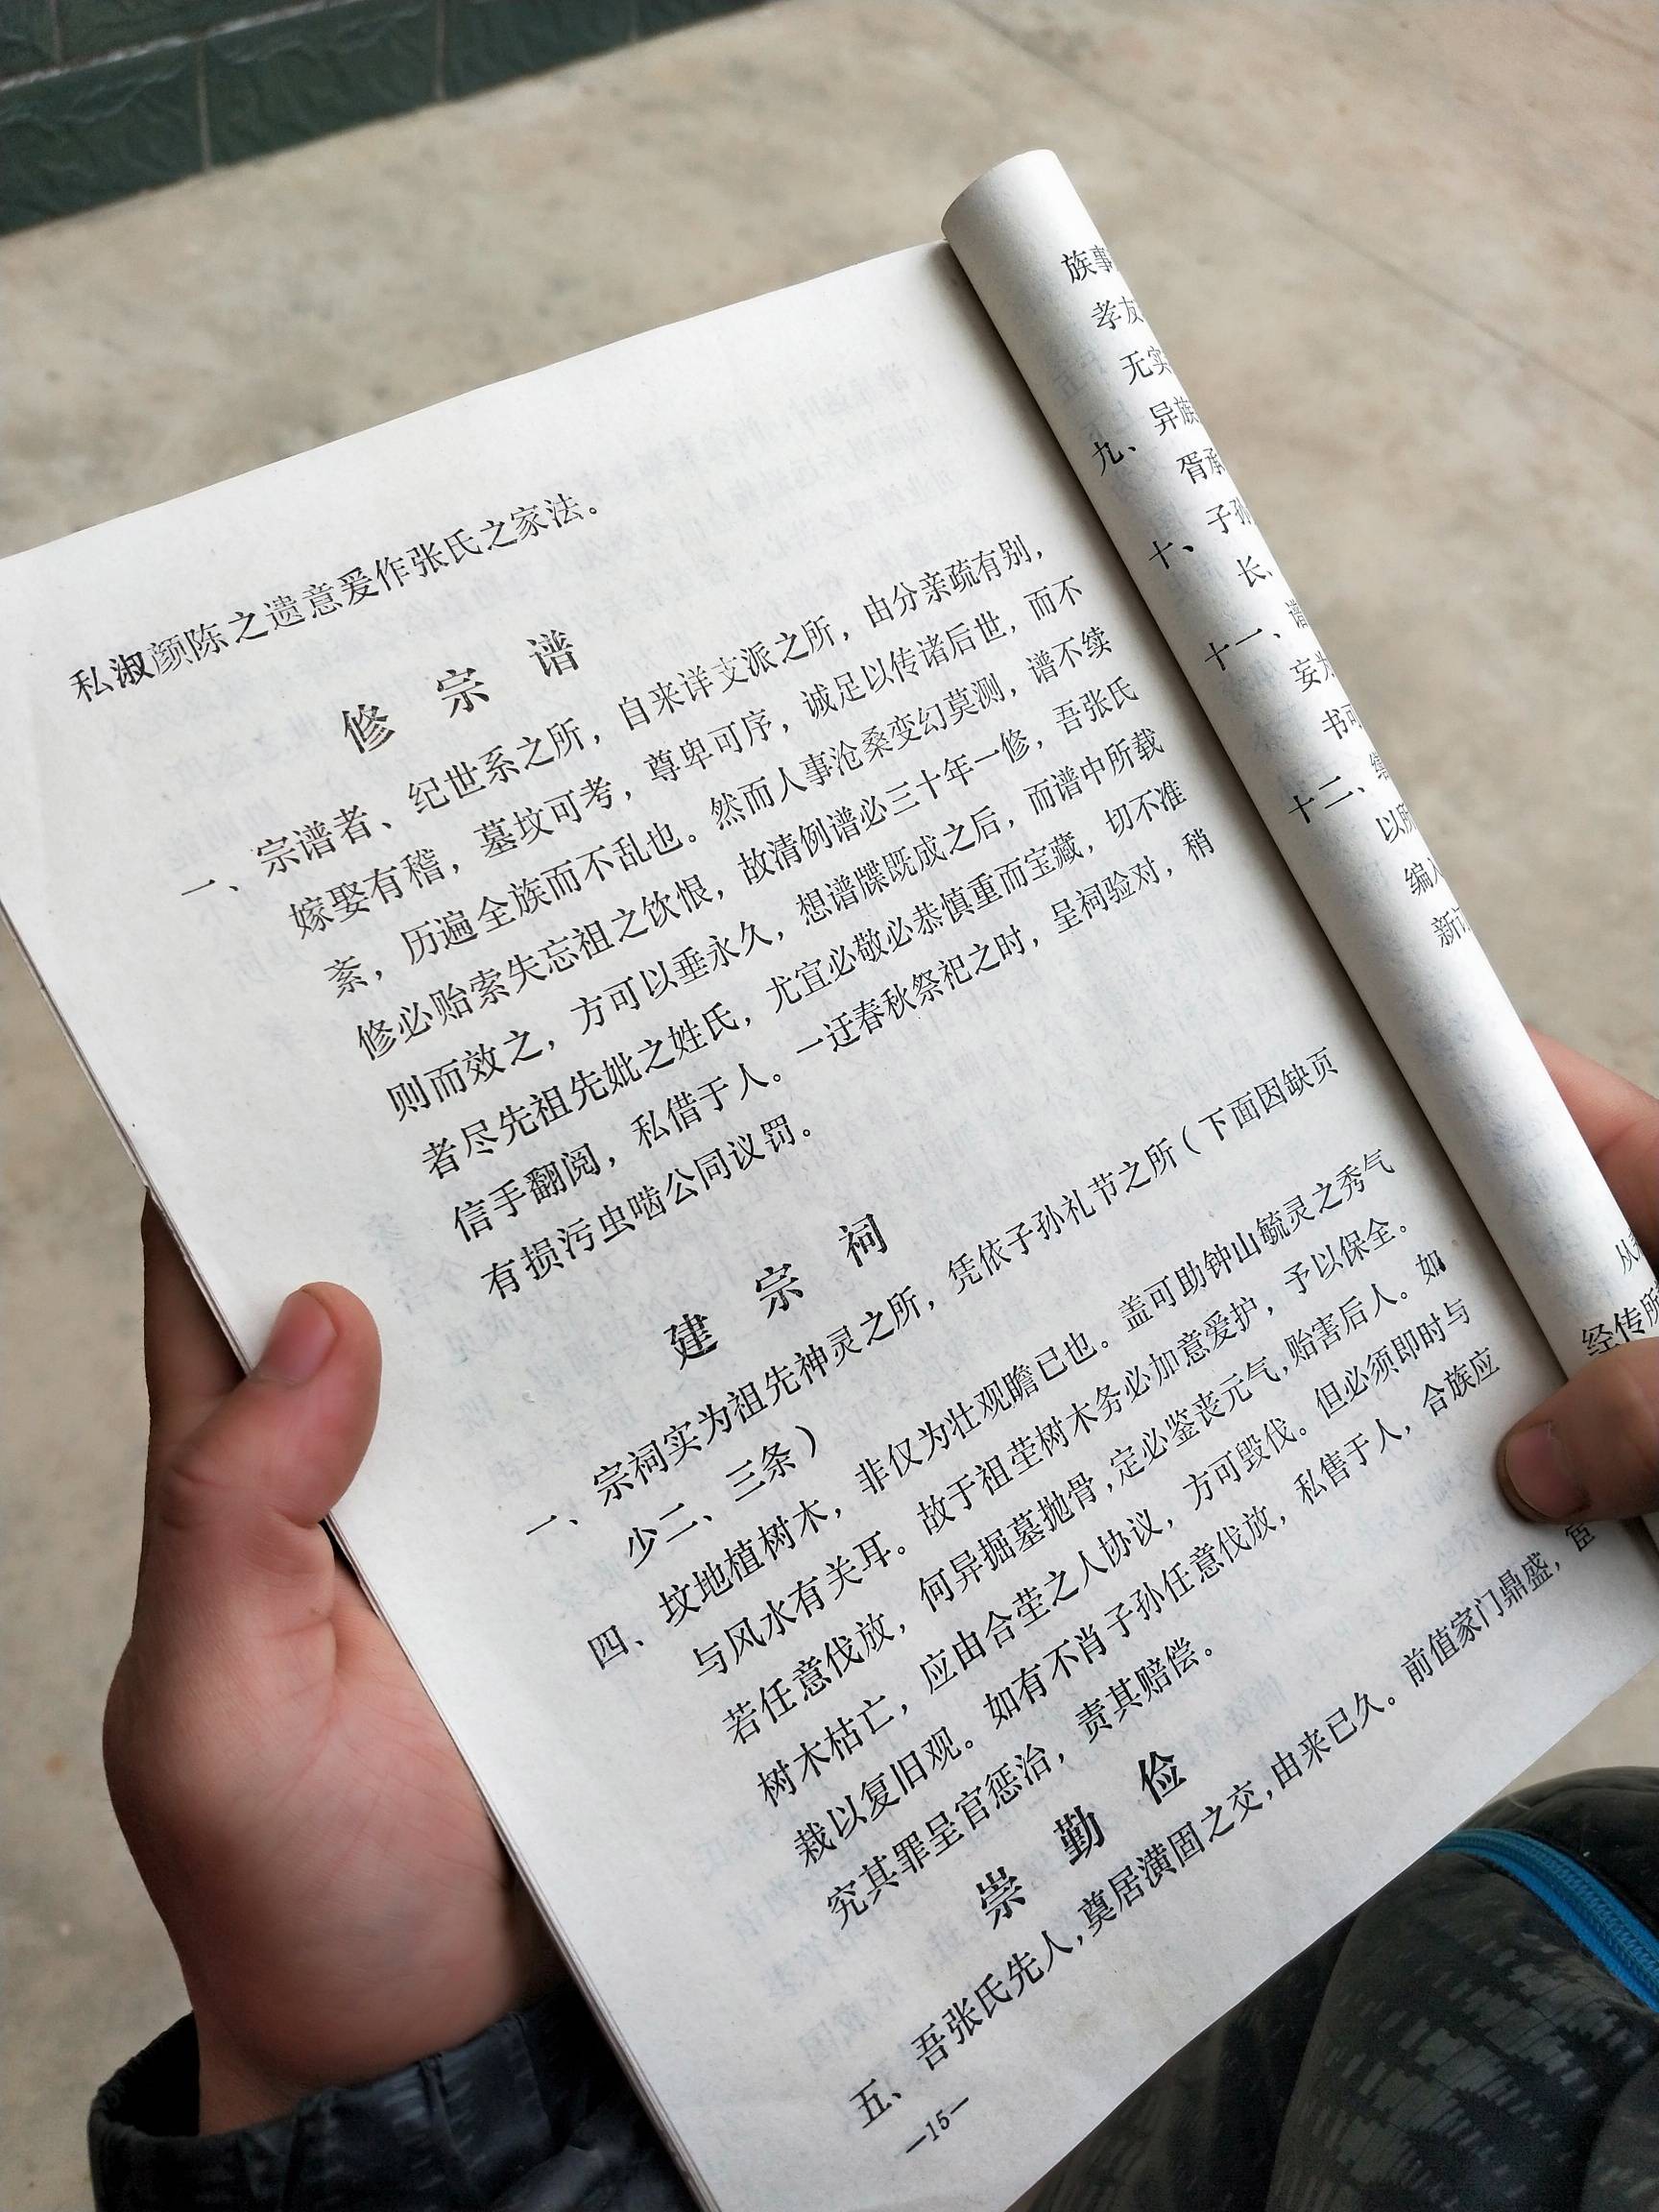 私淑颜陈之遗意爰作张氏之家法。
修宗谱
一、宗谱者、纪世系之所，自来详支派之所，由分亲疏有别，
嫁娶有稽，墓坟可考，尊卑可序，诚足以传诸后世，而不
紊，历遍全族而不乱也。然而人事沧桑变幻莫测，谱不续
修必贻索失忘祖之饮恨，故清例谱必三十年一修，吾张氏
则而效之，方可以垂永久，想谱牒既成之后，而谱中所载
者尽先祖先妣之姓氏，尤宜必敬必恭慎重而宝藏，切不准
信手翻阅，私借于人。一迂春秋祭祀之时，呈祠验对，稍
有损污虫啮公同议罚。
建宗祠
一、宗祠实为祖先神灵之所，凭依子孙礼节之所（下面因缺页
少二、三条）
四、坟地植树木，非仅为壮观瞻已也。盖可助钟山毓灵之秀气
与风水有关耳。故于祖茔树木务必加意爱护，予以保全。
若任意伐放，何异掘墓抛骨，定必鉴丧元气，贻害后人。如
树木枯亡，应由合茔之人协议，方可毁伐。但必须即时与
栽以复旧观。如有不肖子孙任意伐放，私售于人，合族应
究其罪呈官惩治，责其赔偿。
崇勤俭
五、吾张氏先人，奠居潢固之交，由来已久。前值家门鼎盛，宦
—15—
族事
孝友
无实
九、异族
胥承
十、子孙
长、
十一、谱
妄为
书可
十二、
以所
编入
新订
从
经传所